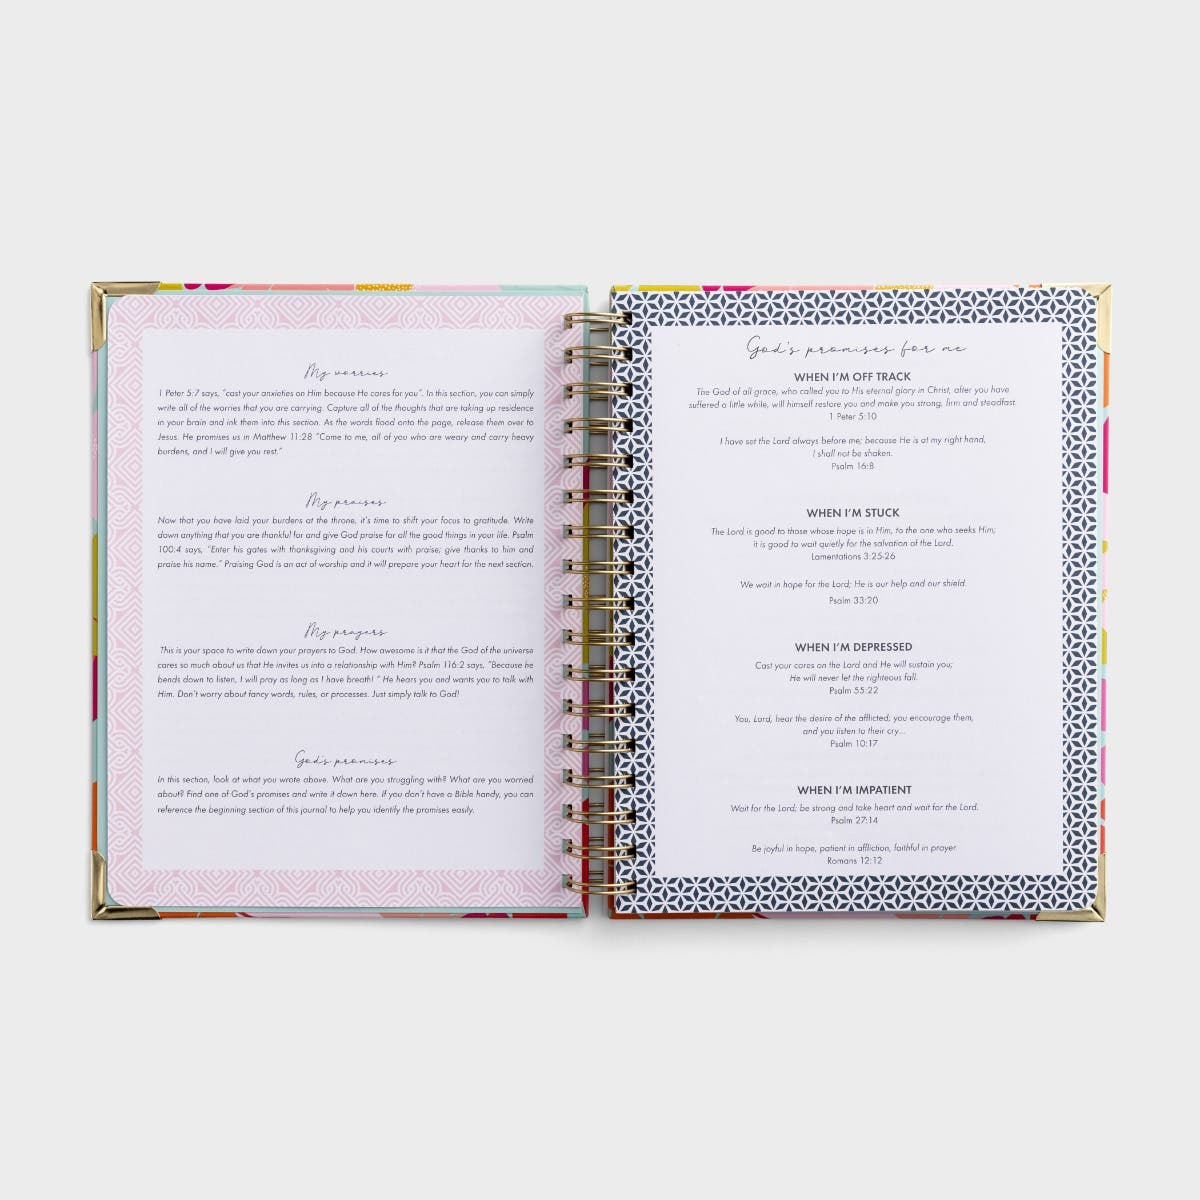 My worries
1 Peter 5:7 says, "cast your anxieties on Him because He cares for you". In this section, you can simply
write all of the worries that you are carrying. Capture all of the thoughts that are taking up residence
in your brain and ink them into this section. As the words flood onto the page, release them over to
Jesus. He promises us in Matthew 11:28 "Come to me, all of you who are weary and carry heavy
burdens, and I will give you rest."
My praises
Now that you have laid your burdens at the throne, it's time to shift your focus to gratitude. Write
down anything that you are thankful for and give God praise for all the good things in your life. Psalm
100:4 says, "Enter his gates with thanksgiving and his courts with praise; give thanks to him and
praise his name." Praising God is an act of worship and it will prepare your heart for the next section.
My prayers
This is your space to write down your prayers to God. How awesome is it that the God of the universe
cares so much about us that He invites us into a relationship with Him? Psalm 116:2 says, "Because he
bends down to listen, I will pray as long as I have breath! " He hears you and wants you to talk with
Him. Don't worry about fancy words, rules, or processes. Just simply talk to God!
God's promises
In this section, look at what you wrote above. What are you struggling with? What are you worried
about? Find one of God's promises and write it down here. If you don't have a Bible handy, you can
reference the beginning section of this journal to help you identify the promises easily.
God's promises for me
WHEN I'M OFF TRACK
The God of all grace, who called you to His eternal glory in Christ, after you have
suffered a little while, will himself restore you and make you strong, firm and steadfast.
1 Peter 5:10
I have set the Lord always before me; because He is at my right hand,
I shall not be shaken.
Psalm 16:8
WHEN I'M STUCK
The Lord is good to those whose hope is in Him, to the one who seeks Him;
it is good to wait quietly for the salvation of the Lord.
Lamentations 3:25-26
We wait in hope for the Lord; He is our help and our shield.
Psalm 33:20
WHEN I'M DEPRESSED
Cast your cares on the Lord and He will sustain you;
He will never let the righteous fall.
Psalm 55:22
You, Lord, hear the desire of the afflicted; you encourage them,
and you listen to their cry...
Psalm 10:17
WHEN I'M IMPATIENT
Wait for the Lord; be strong and take heart and wait for the Lord.
Psalm 27:14
Be joyful in hope, patient in affliction, faithful in prayer.
Romans 12:12